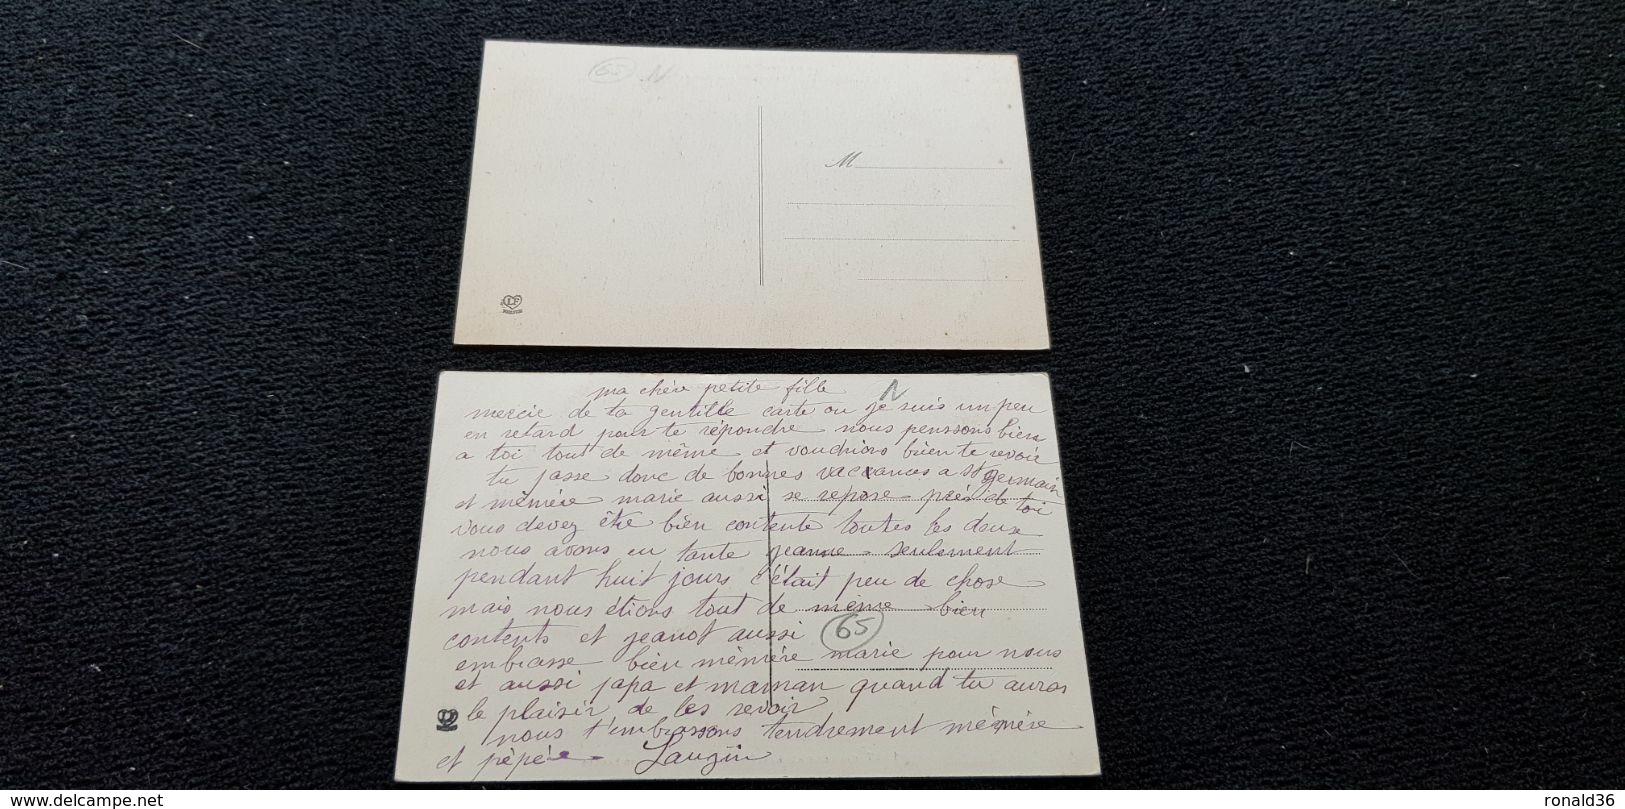 65 N
M
ma chère petite fille N
mercie de ta gentille carte ou je suis un peu
en retard pour te répondre nous penssons bien
a toi tout de même et voudrions bien te revoir
tu passe donc de bonnes vacances a St germain
et mémère marie aussi se repose près de toi
vous devez être bien contente toutes les deux
nous avons eu tante jeanne seulement
pendant huit jours c'était peu de chose
mais nous étions tout de même bien
contents et jeanot aussi
65
embrasse bien mémère marie pour nous
et aussi papa et maman quand tu auras
le plaisir de les revoir
nous t'embrassons tendrement mémère
et pépère Laugin
delcampe.net
ronald36